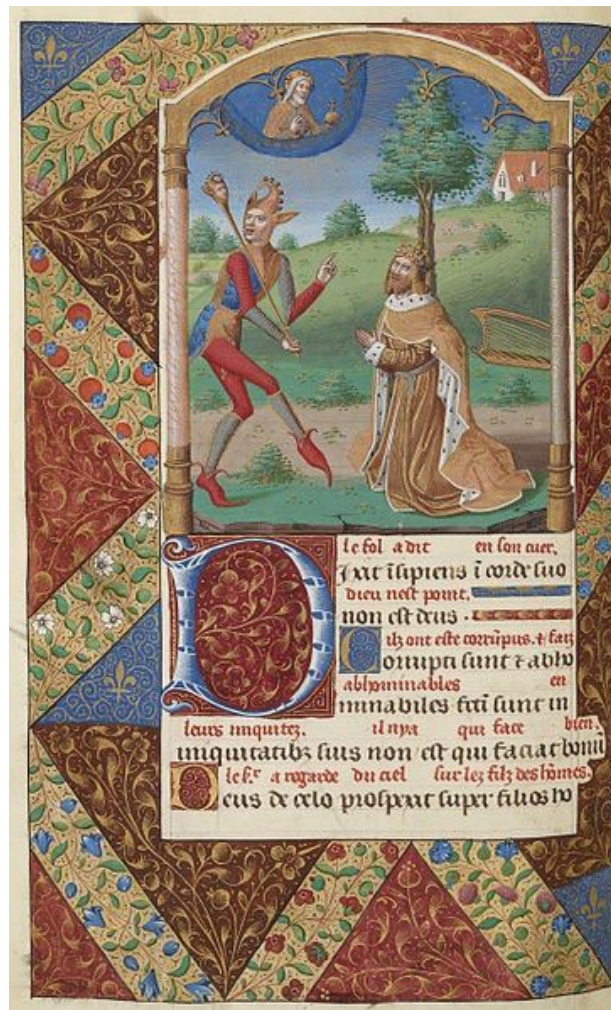 le fol a dit en son cuer.
Dixit īsipiens ī corde suo
dieu nest point.
non est deus.
ilz ont este corrūpus. ⁊ faiz
Corrupti sunt ⁊ abho
abhominables en
minabiles fcti sunt in
leurs iniquitez. il nya qui face bien.
iniquitatibz suis non est qui faciat bonū
le sr a regarde du ciel sur lez filz des hōmes.
Deus de celo prospexit super filios ho